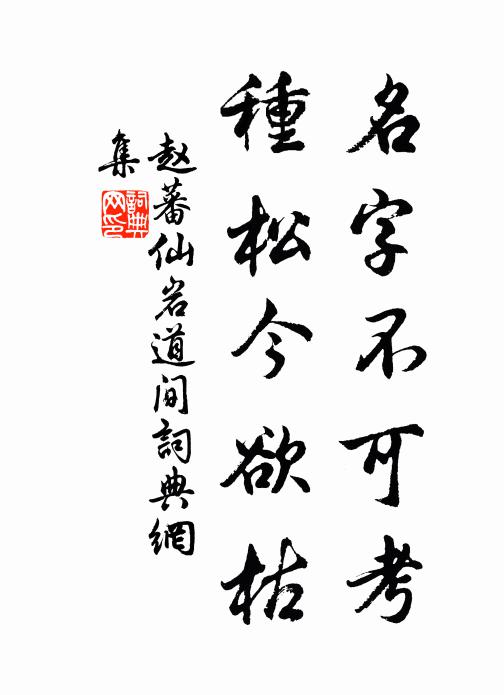 名字不可考
種松今欲枯
赵蕃仙岩道间詞典網
集
詞典
网印